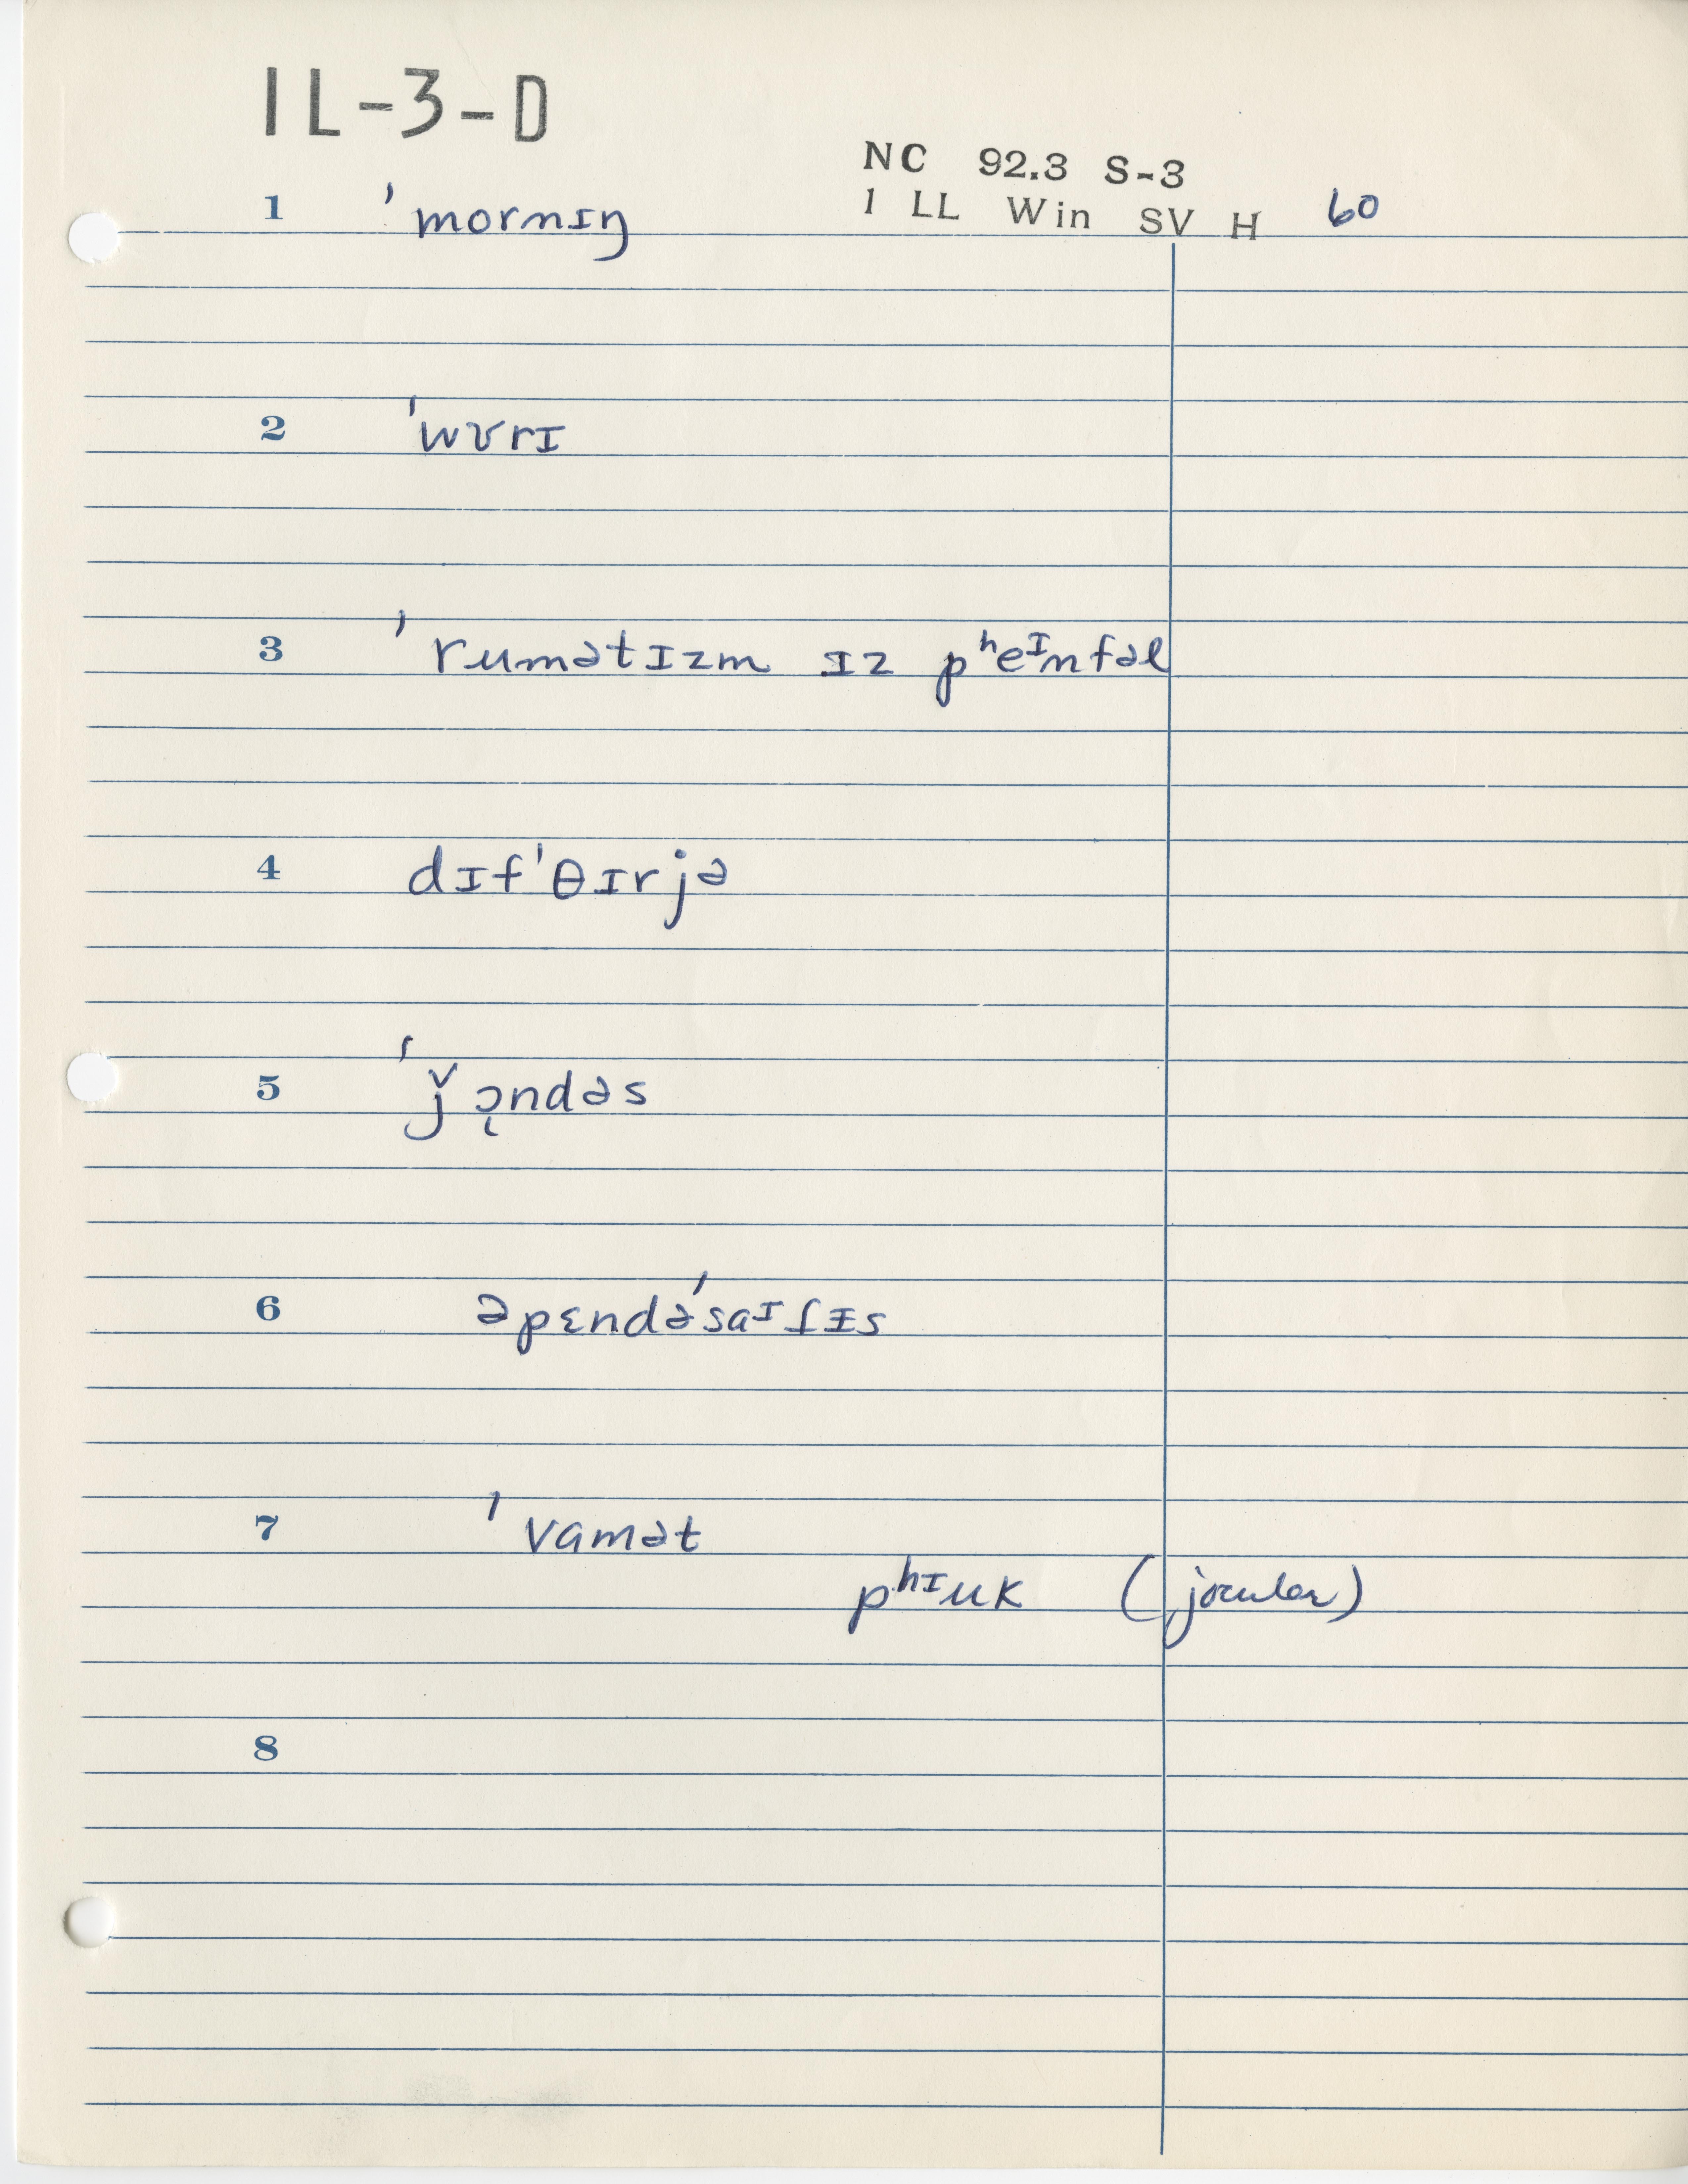 IL-3-D
NC 92.3 S-3
1 LL Win SV H 60
1 ˈmornɪŋ
2 ˈwʊrɪ
3 ˈrumətɪzm ɪz pʰeᶦnfəl
4 dɪfˈθɪrjə
5 ˈǰɔ̨ndəs
6 əpɛndəˈsaᶦɾɪs
7 ˈvamət
pʰᶦuk (jocular)
8